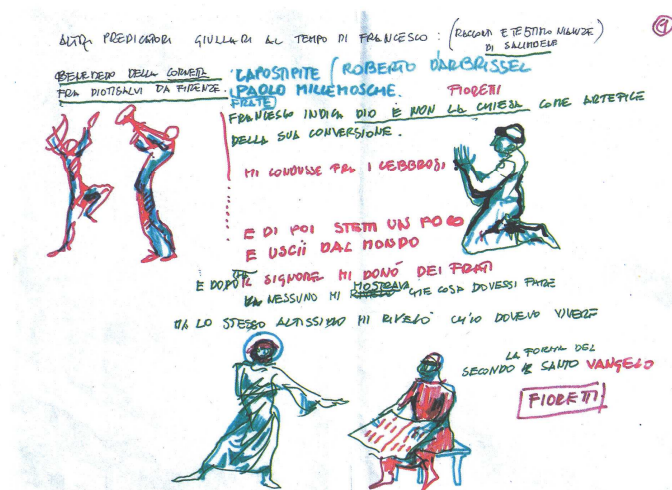 ALTRI PREDICATORI GIULLARI AL TEMPO DI FRANCESCO: (RACCONTI E TESTIMONIANZE
DI SALIMBENE)
9
BENEDEDO DELLA CORNETTA
FRA DIOTISALVI DA FIRENZE.
CAPOSTIPITE (ROBERTO D'ARBRISSEL
PAOLO MILLEMOSCHE. FIORETTI
FRATE
FRANCESCO INDICA DIO E NON LA CHIESA COME ARTEFICE
DELLA SUA CONVERSIONE.
MI CONDUSSE FRA I LEBBROSI
E DI POI STETTI UN POCO
E USCII DAL MONDO
E DOPO CHE IL SIGNORE MI DONÒ DEI FRATI
NESSUNO MI MOSTRAVA CHE COSA DOVESSI FARE
MA LO STESSO ALTISSIMO MI RIVELÒ CH'IO DOVEVO VIVERE
LA FORMA DEL
SECONDO IL SANTO VANGELO
FIORETTI